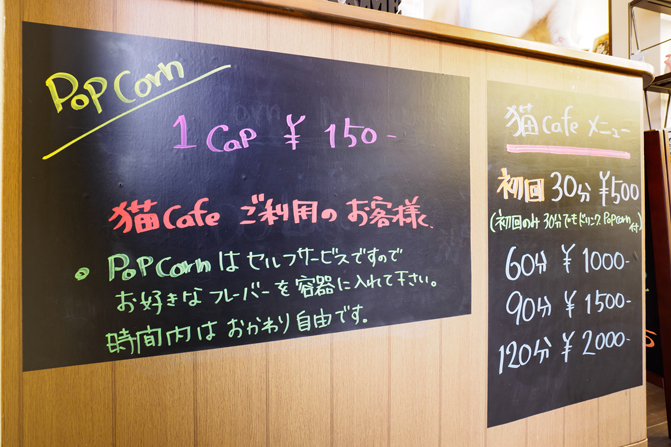 PoP Corn
1 Cap ¥ 150-
猫Cafe ご利用の お客様へ
• PoP Corn は セルフサービスですので
お好きな フレーバーを 容器に入れて下さい。
時間内は おかわり自由です。
猫Cafe メニュー
初回 30分 ¥500
(初回のみ 30分でもドリンク、Popcorn付)
60分 ¥ 1000-
90分 ¥ 1500-
120分 ¥ 2000-